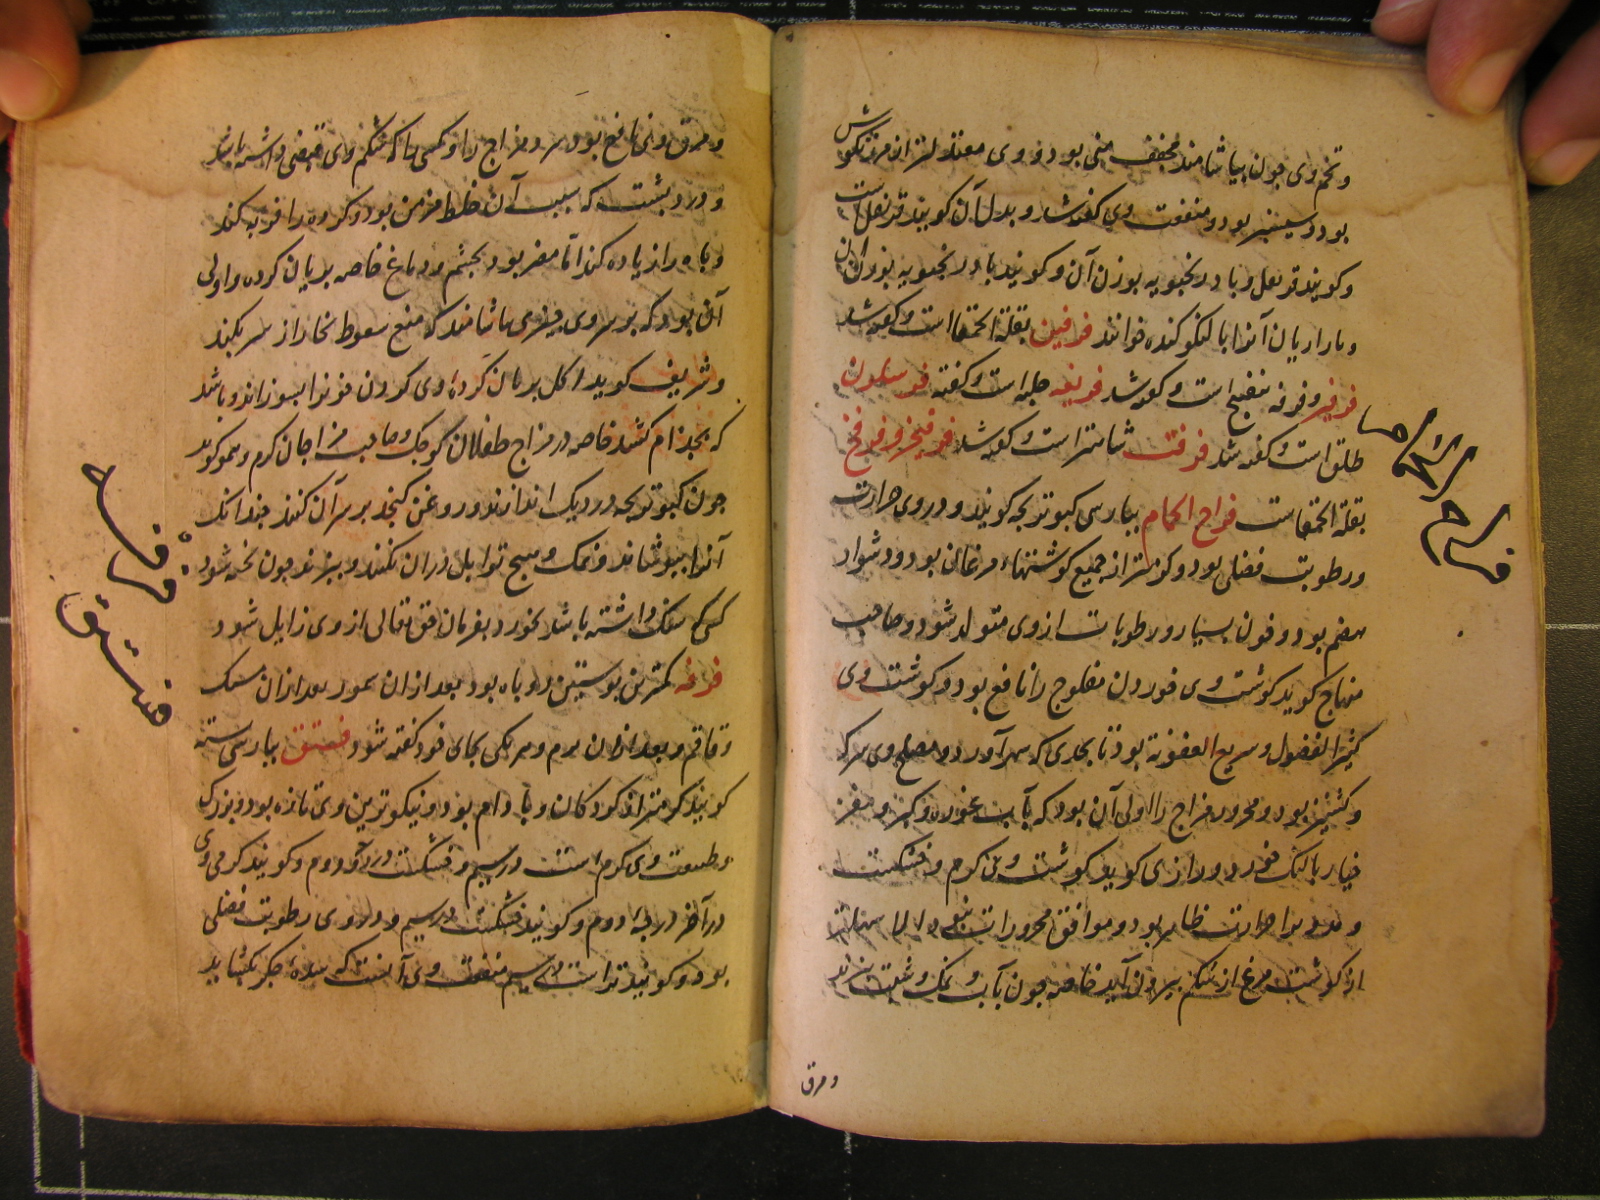 و تخم وی چون بیاشامند مجفف منی بود و وی معتدلتر از مرزنکوش
بود و سیسنبر بود و منفعت وی گفته شد و بدل آن کویند قرنفل است
و کویند قرنفل و بادرنجبویه بوزن آن و کویند بادرنجبویه بوزن آن
آنرا بالنکو کنده خوانند فرفین بقلة الحمقا است و گفته شد
فرفیر و فرفه بنفسج است و گفته شد فریقه حلبه است و گفته شد فرسلون
طلق است و گفته شد فرفت شاهترج است و گفته شد فرفیخ و فرفخ
بقلة الحمقاست فراخ الحمام بپارسی کبوتر بچه کویند و در وی حرارت
و رطوبت فضلی بود و کرمتر از جمیع کوشتهاء مرغان بود و دشوار
هضم بود و خون بسیار و رطوبات از وی متولد شود و صاحب
منهاج کوید کوشت وی خوردن مفلوج را نافع بود و کوشت وی
کثیر الفضول و سریع العفونة بود تا بحدی که سهر آورد و مصلح وی سرکه
و کشنیز بود و محرور مزاج را اولی آن بود که بآب غوره و کشنیز و مغز
خیار بالنک خورد و رازی کوید کوشت وی کرم و خشکست
از کوشت مرغ از شکم بیرون آید خاصه چون بآب و نمک و شبت بپزند
و مرق
فراخ الحمام
و مرق وی نافع بود سرد مزاج را و کسی را که شکم وی قبضی داشته باشد
و درد پشت که سبب آن خلط مزمن بود و کرده را فربه کند
و باه را زیاده کند امّا مضر بود بچشم و دماغ خاصه بریان کرده و اولی
آن بود که بر سر وی چیزی بیاشامند که منع سعوط بخار از سر بکند
و شریف کوید اکل بریان کرده وی کردن خونرا بسوزاند و باشد
که بجذام کشد خاصه در مزاج طفلان کوچک و صاحب مزاجان کرم و هموکوید
چون کبوتر بچه در دیک اندازند و روغن کنجد بر سر آن کنند چندانک
آنرا بپوشاند و نمک و هیچ توابل در آن نکنند و بپزند چون پخته شود
کسی که سنک داشته باشد بخورد بفرمان حق تعالی از وی زایل شود
فرفه کمترین پوستین روباه بود بعد از آن سمور بعد از آن سنک
و قاقم و بعد از آن بره و هر یکی بجای خود کفته شود فستق بپارسی پسته
کویند کرمتر از کردکان و بادام بود و نیکوترین وی تازه بود و بزرک
و طبیعت وی کرم است در سیم و خشکست در دوم و کویند کرمی وی
در آخر درجه دوم و کویند خشکست در سیم و در وی رطوبت فضلی
بود و کویند تر است در سیم منفعت وی آنست که سده جکر بکشاید
فرفه
فستق